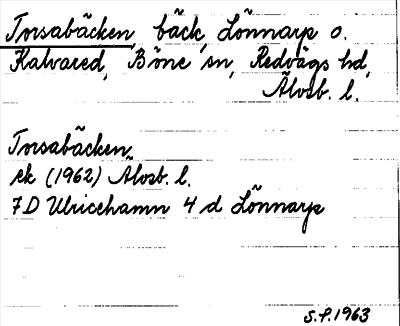 Torsabäcken, bäck, Lönnarp o.
Kalvared, Böne sn, Redvägs hd,
Älvsb. l.
Torsabäcken
ek (1962) Älvsb. l.
7D Ulricehamn 4 d Lönnarp
S.P. 1963